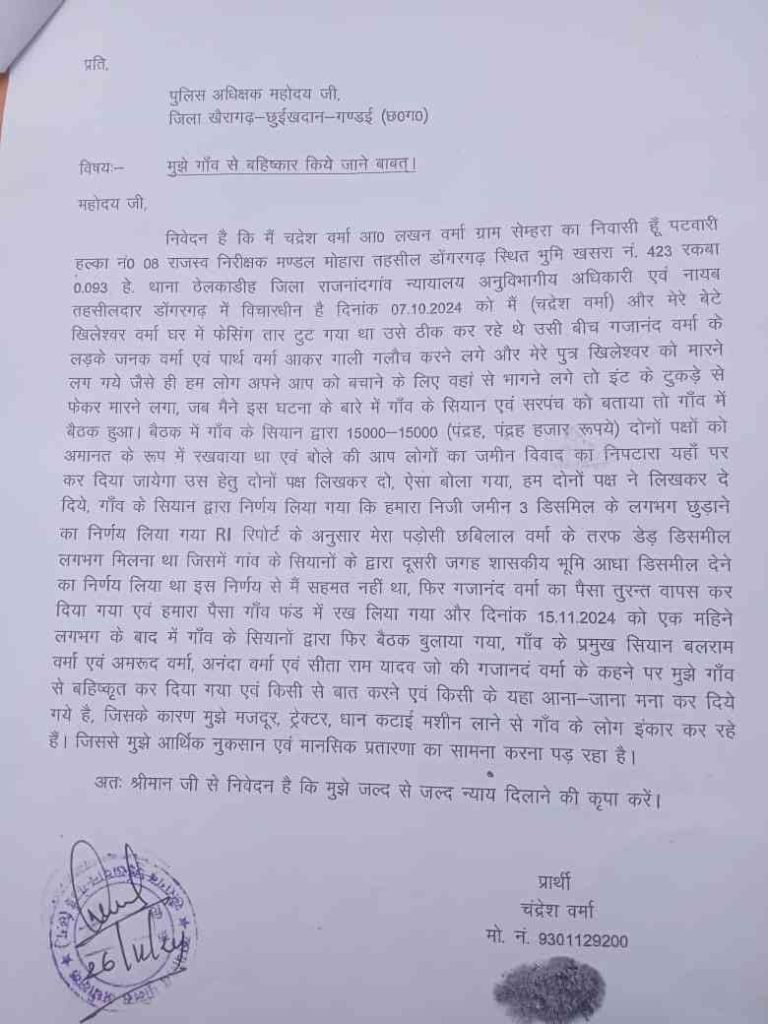 प्रति,
पुलिस अधिक्षक महोदय जी,
जिला खैरागढ़–छुईखदान–गण्डई (छ0ग0)
विषयः– मुझे गाँव से बहिष्कार किये जाने बाबत्।
महोदय जी,
निवेदन है कि मैं चद्रेश वर्मा आ0 लखन वर्मा ग्राम सेम्हरा का निवासी हूँ पटवारी
हल्का नं0 08 राजस्व निरीक्षक मण्डल मोहारा तहसील डोंगरगढ़ स्थित भुमि खसरा नं. 423 रकबा
0.093 हे. थाना ठेलकाडीह जिला राजनांदगांव न्यायालय अनुविभागीय अधिकारी एवं नायब
तहसीलदार डोंगरगढ़ में विचारधीन है दिनांक 07.10.2024 को मैं (चद्रेश वर्मा) और मेरे बेटे
खिलेश्वर वर्मा घर में फेसिंग तार टुट गया था उसे ठीक कर रहे थे उसी बीच गजानंद वर्मा के
लड़के जनक वर्मा एवं पार्थ वर्मा आकर गाली गलौच करने लगे और मेरे पुत्र खिलेश्वर को मारने
लग गये जैसे ही हम लोग अपने आप को बचाने के लिए वहां से भागने लगे तो इंट के टुकड़े से
फेकर मारने लगा, जब मैने इस घटना के बारे में गाँव के सियान एवं सरपंच को बताया तो गाँव में
बैठक हुआ। बैठक में गाँव के सियान द्वारा 15000–15000 (पंद्रह, पंद्रह हजार रूपये) दोनों पक्षों को
अमानत के रूप में रखवाया था एवं बोले की आप लोगों का जमीन विवाद का निपटारा यहाँ पर
कर दिया जायेगा उस हेतु दोनों पक्ष लिखकर दो, ऐसा बोला गया, हम दोनों पक्ष ने लिखकर दे
दिये, गाँव के सियान द्वारा निर्णय लिया गया कि हमारा निजी जमीन 3 डिसमिल के लगभग छुड़ाने
का निर्णय लिया गया RI रिपोर्ट के अनुसार मेरा पड़ोसी छबिलाल वर्मा के तरफ डेड़ डिसमील
लगभग मिलना था जिसमें गांव के सियानों के द्वारा दूसरी जगह शासकीय भूमि आधा डिसमील देने
का निर्णय लिया था इस निर्णय से मैं सहमत नहीं था, फिर गजानंद वर्मा का पैसा तुरन्त वापस कर
दिया गया एवं हमारा पैसा गाँव फंड में रख लिया गया और दिनांक 15.11.2024 को एक महिने
लगभग के बाद में गाँव के सियानों द्वारा फिर बैठक बुलाया गया, गाँव के प्रमुख सियान बलराम
वर्मा एवं अमरूद वर्मा, अनंदा वर्मा एवं सीता राम यादव जो की गजानदं वर्मा के कहने पर मुझे गाँव
से बहिष्कृत कर दिया गया एवं किसी से बात करने एवं किसी के यहा आना–जाना मना कर दिये
गये है, जिसके कारण मुझे मजदूर, ट्रेक्टर, धान कटाई मशीन लाने से गाँव के लोग इंकार कर रहे
हैं। जिससे मुझे आर्थिक नुकसान एवं मानसिक प्रतारणा का सामना करना पड़ रहा है।
अतः श्रीमान जी से निवेदन है कि मुझे जल्द से जल्द न्याय दिलाने की कृपा करें।
प्रार्थी
चंद्रेश वर्मा
मो. नं. 9301129200
26/11/24